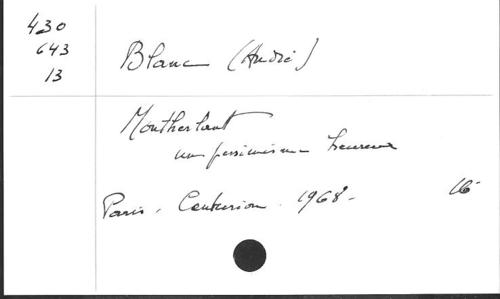 430
643
13
Blanc (André)
Montherlant
un pessimisme heureux
Paris. Centurion. 1968 - 16-